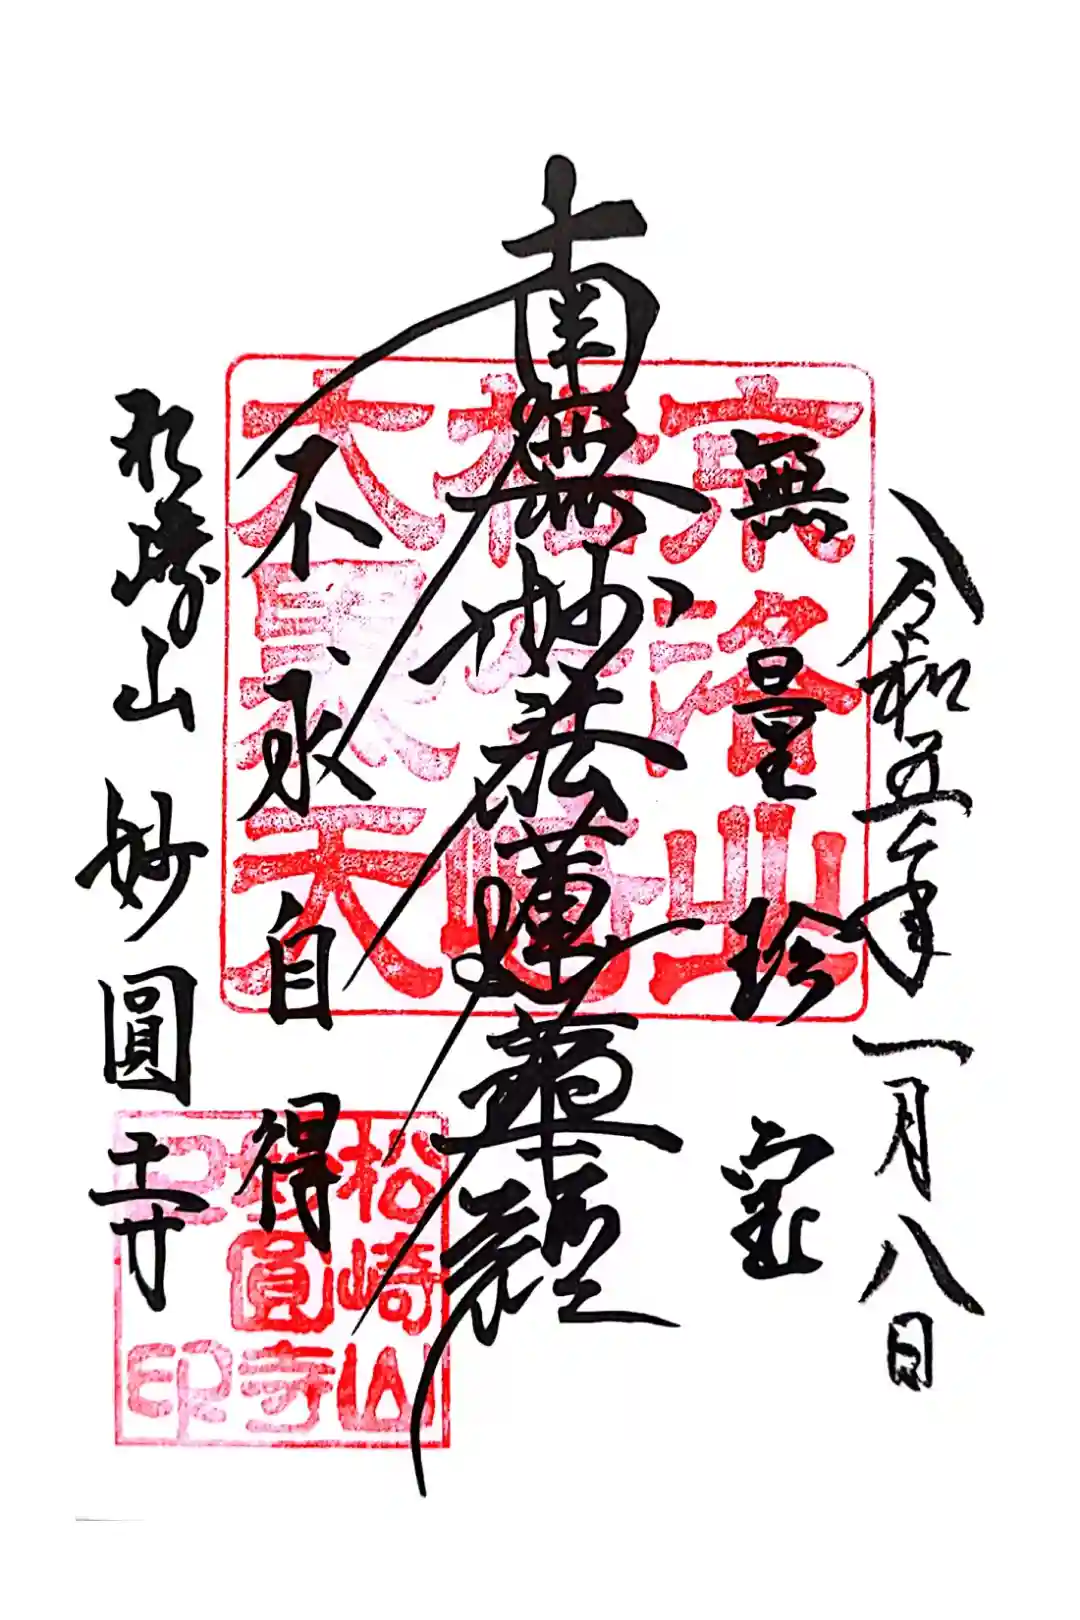 令和五年一月八日
無量珍宝
南無妙法蓮華経
不求自得
松崎山 妙圓寺
京洛北
松ヶ崎
大黒天
松崎山
妙圓寺
之印